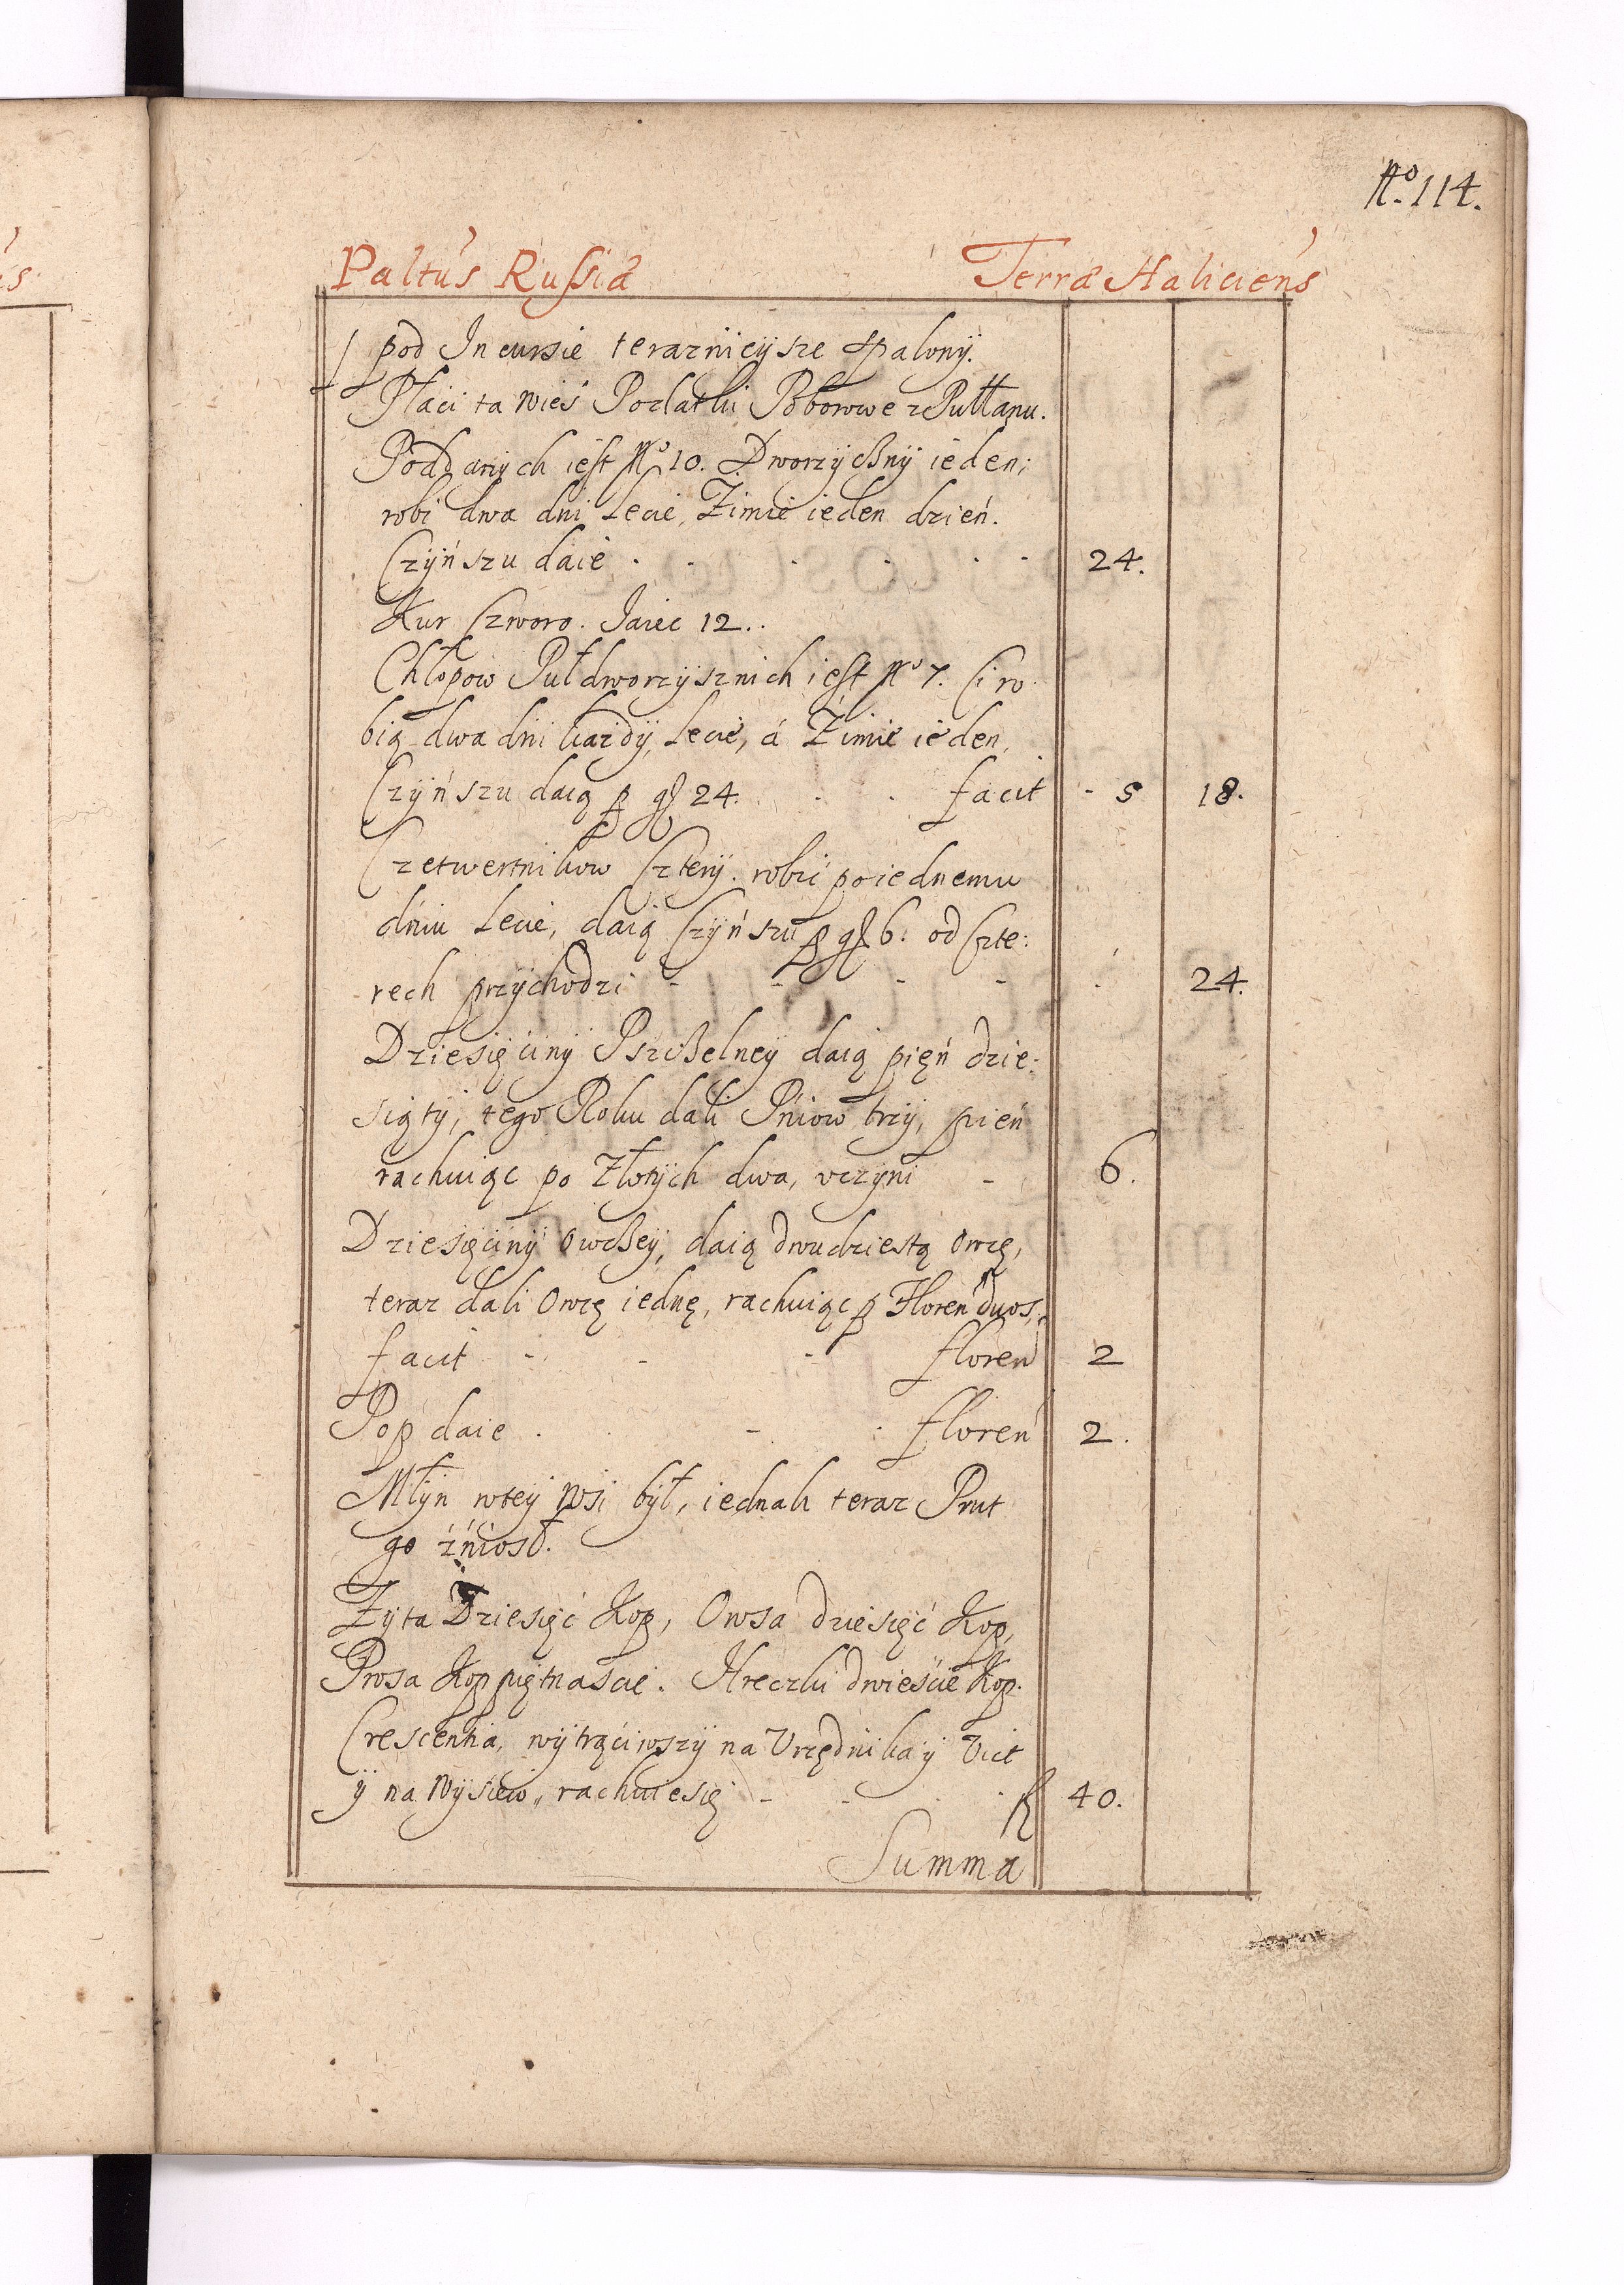 No. 114.
Paltus Russiæ Terræ Haliciens
pod Incursie teraznieÿsze spalonÿ.
Płaci ta wieś Podatki Poborowe z Pułłanu.
Poddanÿch iest No 10. Dworzÿsznÿ ieden;
robi dwa dni Lecie, Zimie ieden dzień.
Czÿńszu daie - - - - - 24.
Kur Czworo. Jaiec 12..
Chłopow Pułdworzÿsznich iest No 7. Ci ro
bią dwa dni każdÿ, Lecie, á Zimie ieden,
Czÿńszu daią p gſ 24. - - facit - 5 18.
Czetwertnikow Czterÿ. robić poiednemu
dńiu Lecie, daią Czÿńszu p gſ 6. od Czte:
rech przÿchodzi - - - - - 24.
Dziesięcinÿ Pszczelneÿ daią pień dzie:
siątÿ, tego Roku dali Pńiow trzÿ, pień
rachuiąc po Złotÿch dwa, vczÿni - 6.
Dziesięcinÿ Owczeÿ, daią dwudziestą Owcę,
teraz dali Owcę iednę, rachuiąc p Floren duos,
facit - - - floren 2
Pop daie - - - floren 2.
Młÿn wteÿ Wsi bÿł, iednak teraz Prut
go źńiosł.
Zÿta Dziesięć Kop, Owsa dziesięć Kop,
Prosa Kop piętnaście. Hreczki dwieście Kop.
Crescentia, wÿtrąciwszÿ na Vrzędnika ÿ Vict
ÿ na Wÿsiew, rachuiesię - - - fl 40.
Summa